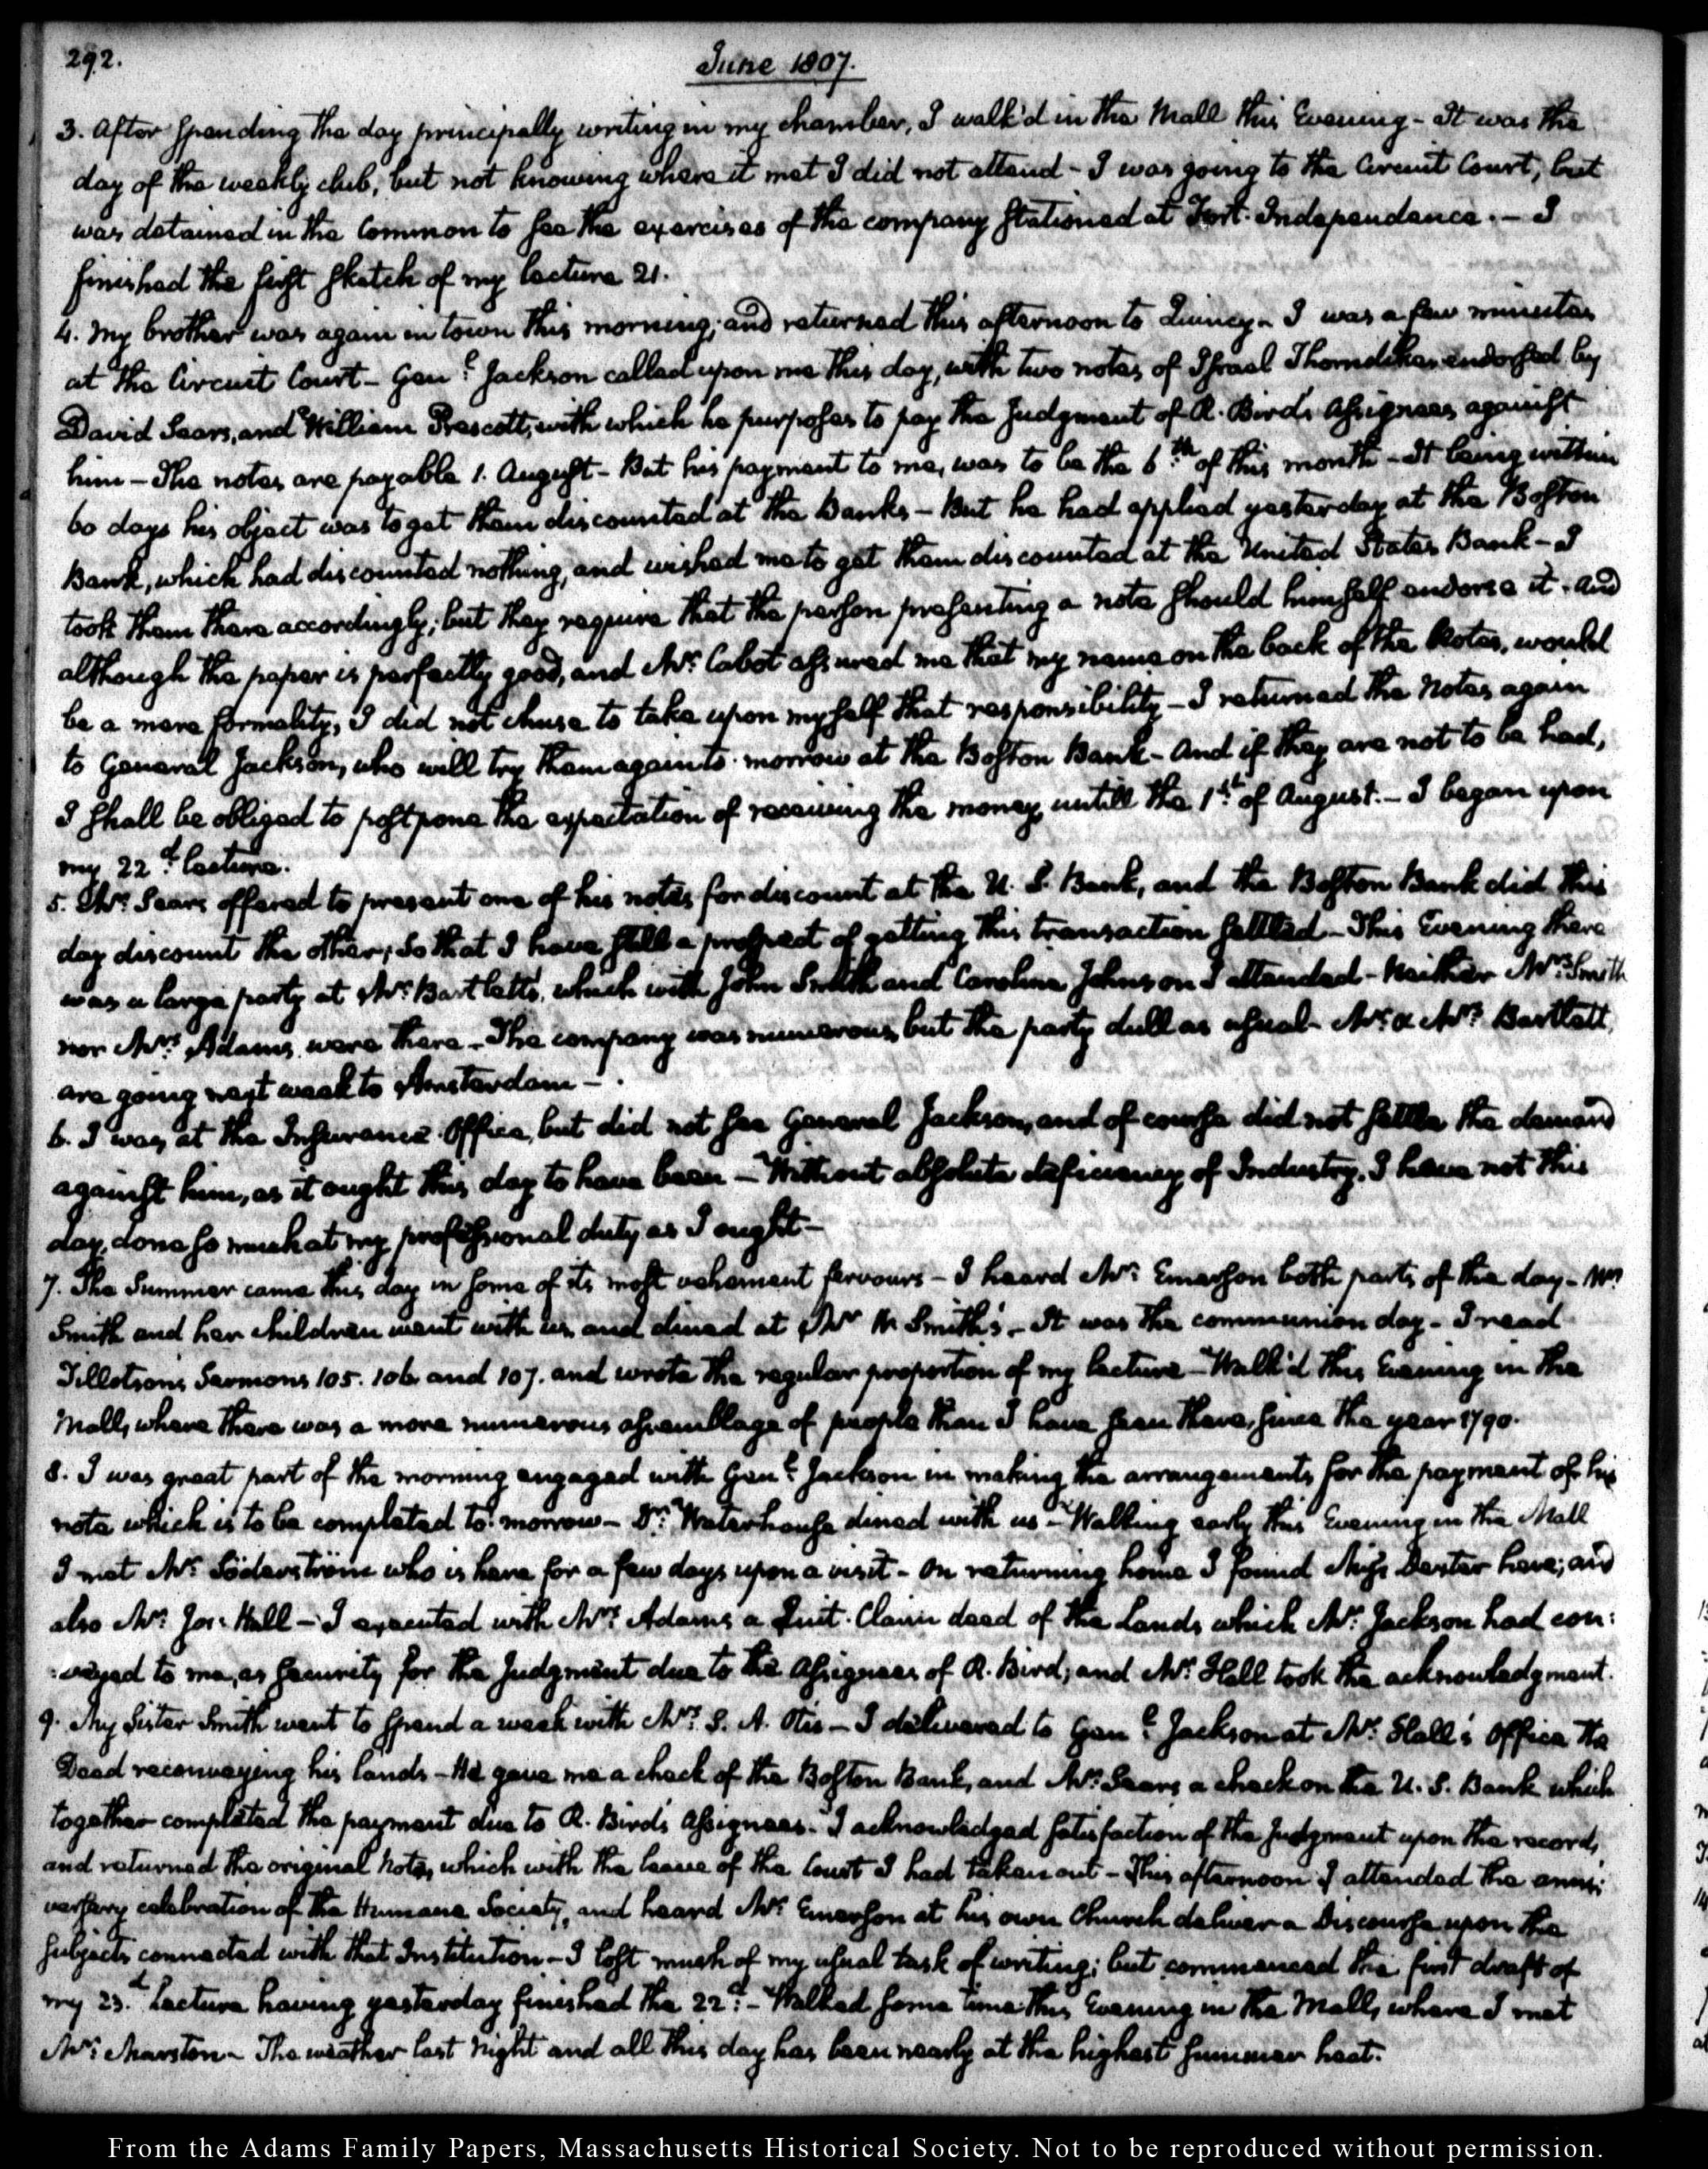 292.
June 1807.
3. After spending the day principally writing in my chamber, I walk'd in the Mall this Evening - It was the
day of the weekly club, but not knowing where it met I did not attend - I was going to the Circuit Court, but
was detained in the Common to see the exercises of the company stationed at Fort-Independence. - I
finished the first sketch of my lecture 21.
4. My brother was again in town this morning; and returned this afternoon to Quincy - I was a few minutes
at the Circuit Court - Genl. Jackson called upon me this day, with two notes of Israel Thorndike endorsed by
David Sears, and William Prescott, with which he purposes to pay the Judgment of R. Bird's Assignees against
him - The notes are payable 1. August - But his payment to me, was to be the 6th. of this month - It being within
60 days his object was to get them discounted at the Banks - But he had applied yesterday at the Boston
Bank, which had discounted nothing, and wished me to get them discounted at the United States Bank - I
took them there accordingly; but they require that the person presenting a note should himself endorse it. And
although the paper is perfectly good, and Mr. Cabot assured me that my name on the back of the Notes, would
be a mere formality, I did not chuse to take upon myself that responsibility - I returned the Notes again
to General Jackson, who will try them again to-morrow at the Boston Bank - And if they are not to be had,
I shall be obliged to postpone the expectation of receiving the money, untill the 1st. of August. - I began upon
my 22d. lecture.
5. Mr. Sears offered to present one of his notes for discount at the U. S. Bank, and the Boston Bank did this
day discount the other; so that I have still a prospect of getting this transaction settled - This Evening there
was a large party at Mr. Bartlett's, which with John Smith and Caroline Johnson I attended - Neither Mrs. Smith
nor Mrs. Adams were there - The company was numerous, but the party dull as usual - Mr. & Mrs. Bartlett,
are going next week to Amsterdam -
6. I was at the Insurance Office, but did not see General Jackson, and of course did not settle the demand
against him, as it ought this day to have been - Without absolute deficiency of Industry, I have not this
day, done so much at my professional duty as I ought -
7. The Summer came this day in some of its most vehement fervours - I heard Mr. Emerson both parts of the day - Mrs.
Smith and her children went with us, and dined at Mr. W. Smith's - It was the communion day - I read
Tillotson's Sermons 105. 106 and 107. and wrote the regular proportion of my lecture - Walk'd this Evening in the
Mall, where there was a more numerous assemblage of people than I have seen there, since the year 1790.
8. I was great part of the morning engaged with Genl. Jackson in making the arrangements for the payment of his
note which is to be completed to-morrow - Dr. Waterhouse dined with us - Walking early this Evening in the Mall
I met Mr. Söderström who is here for a few days upon a visit - On returning home I found Miss Dexter here; and
also Mr. Jos: Hall - I executed with Mrs. Adams a Quit-Claim deed of the Lands which Mr. Jackson had con:
:veyed to me, as security for the Judgment due to the Assignees of R. Bird; and Mr. Hall took the acknowledgment.
9. My Sister Smith went to spend a week with Mrs. S. A. Otis - I delivered to Genl. Jackson at Mr. Hall's Office the
Deed reconveying his lands - He gave me a check of the Boston Bank, and Mr. Sears a check on the U. S. Bank which
together completed the payment due to R. Bird's Assignees. I acknowledged satisfaction of the Judgment upon the record,
and returned the original Note, which with the leave of the Court I had taken out - This afternoon I attended the anni:
versary celebration of the Humane Society, and heard Mr. Emerson at his own Church deliver a Discourse upon the
subjects connected with that Institution - I lost much of my usual task of writing; but commenced the first draft of
my 23.d Lecture having yesterday finished the 22d. - Walked some time this Evening in the Mall, where I met
Mr. Marston - The weather last Night and all this day has been nearly at the highest summer heat.
From the Adams Family Papers, Massachusetts Historical Society. Not to be reproduced without permission.